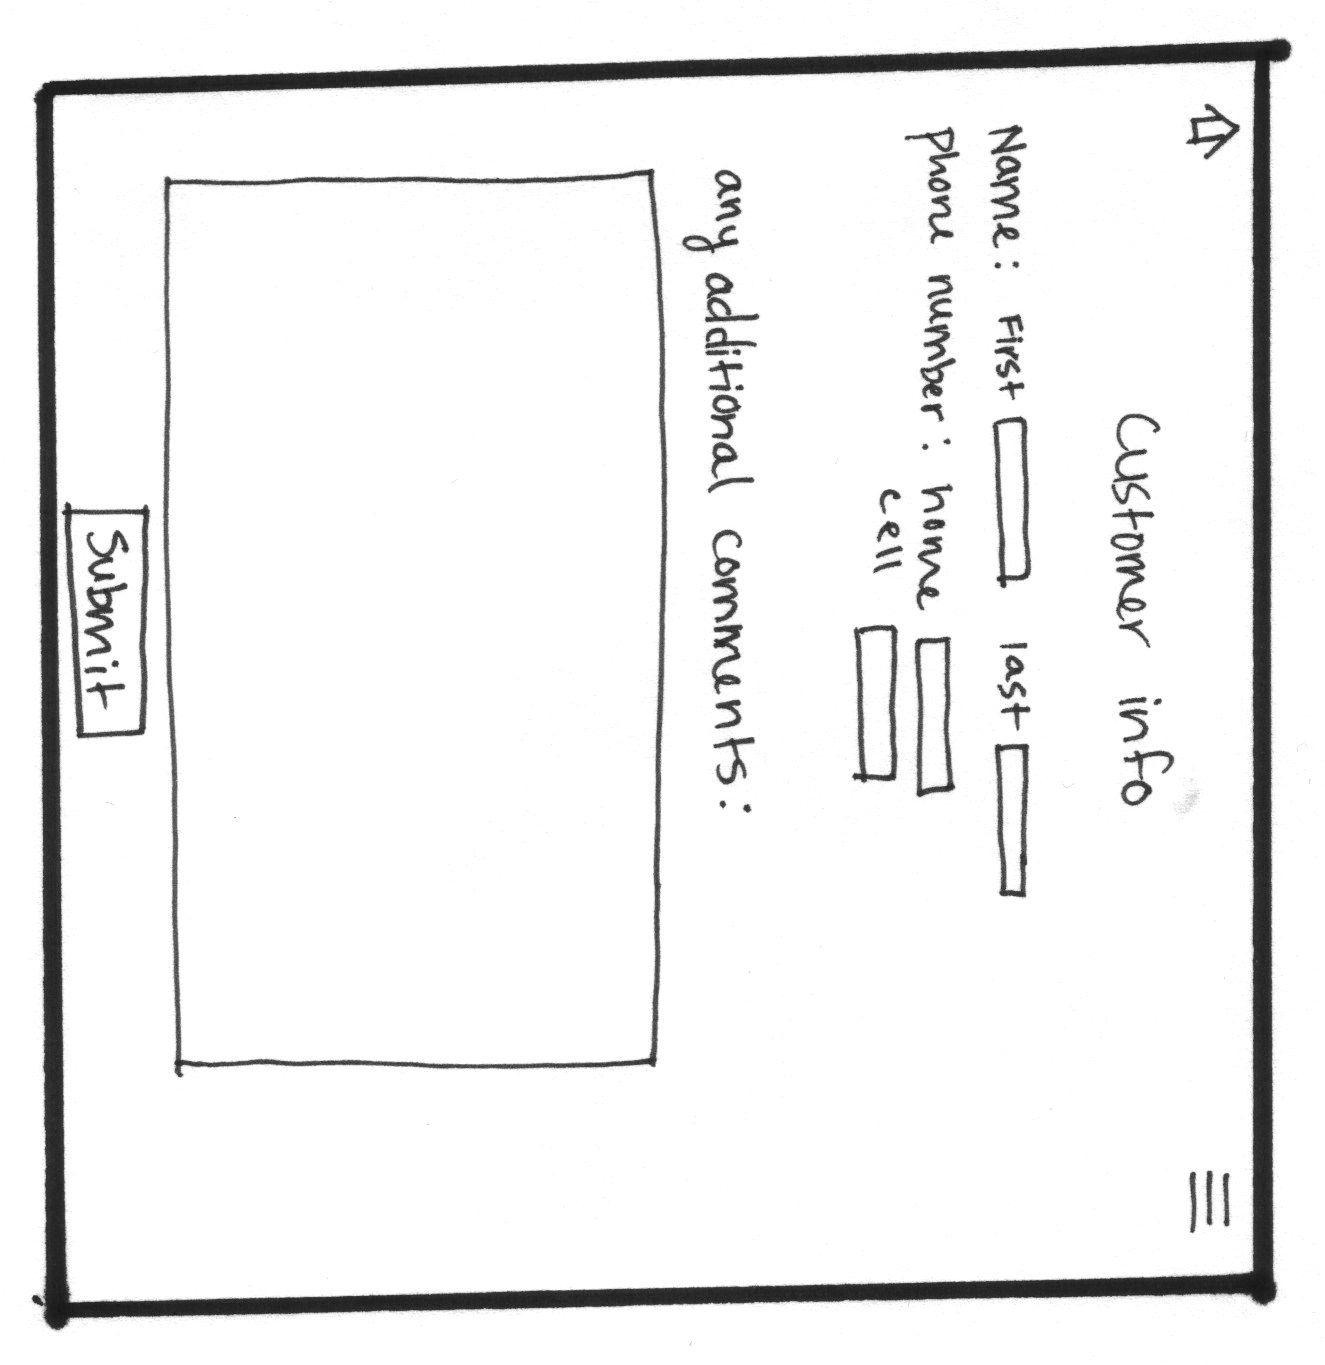 Customer info
Name: First last
Phone number: home
cell
any additional comments:
Submit